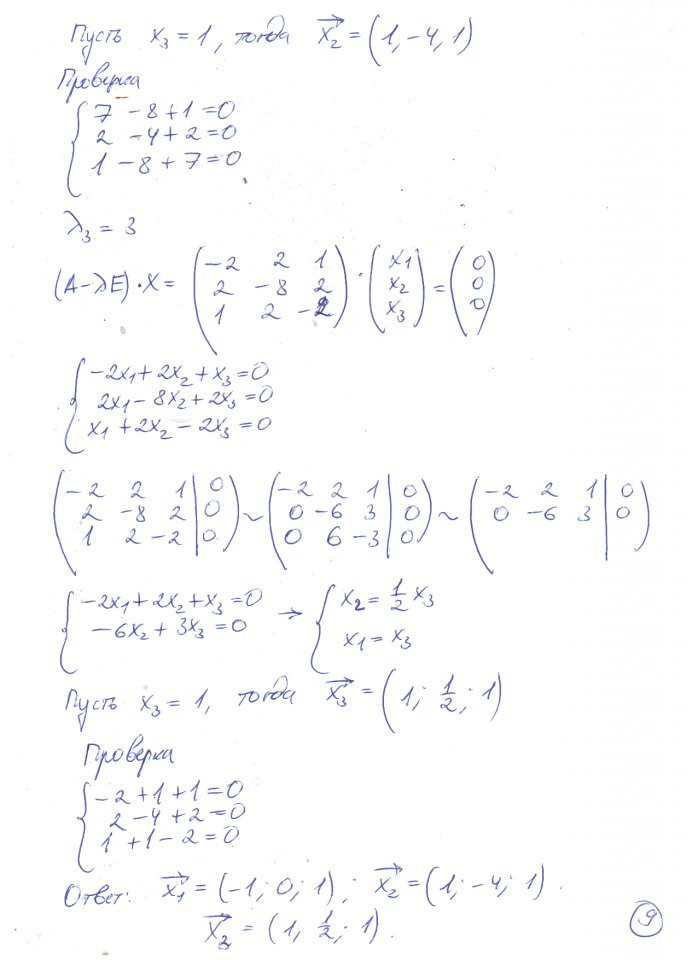 Пусть x₃ = 1, тогда x₂⃗ = (1, -4, 1)
Проверка
{ 7 - 8 + 1 = 0
2 - 4 + 2 = 0
1 - 8 + 7 = 0
λ₃ = 3
(A - λE) · X = ( -2 2 1 ; 2 -8 2 ; 1 2 -2 ) · ( x₁ ; x₂ ; x₃ ) = ( 0 ; 0 ; 0 )
{ -2x₁ + 2x₂ + x₃ = 0
2x₁ - 8x₂ + 2x₃ = 0
x₁ + 2x₂ - 2x₃ = 0
( -2 2 1 | 0 ; 2 -8 2 | 0 ; 1 2 -2 | 0 ) ~ ( -2 2 1 | 0 ; 0 -6 3 | 0 ; 0 6 -3 | 0 ) ~ ( -2 2 1 | 0 ; 0 -6 3 | 0 )
{ -2x₁ + 2x₂ + x₃ = 0 → { x₂ = 1/2 x₃
-6x₂ + 3x₃ = 0 x₁ = x₃
Пусть x₃ = 1, тогда x₃⃗ = (1; 1/2; 1)
Проверка
{ -2 + 1 + 1 = 0
2 - 4 + 2 = 0
1 + 1 - 2 = 0
Ответ: x₁⃗ = (-1; 0; 1); x₂⃗ = (1; -4; 1).
x₃⃗ = (1, 1/2; 1).
9